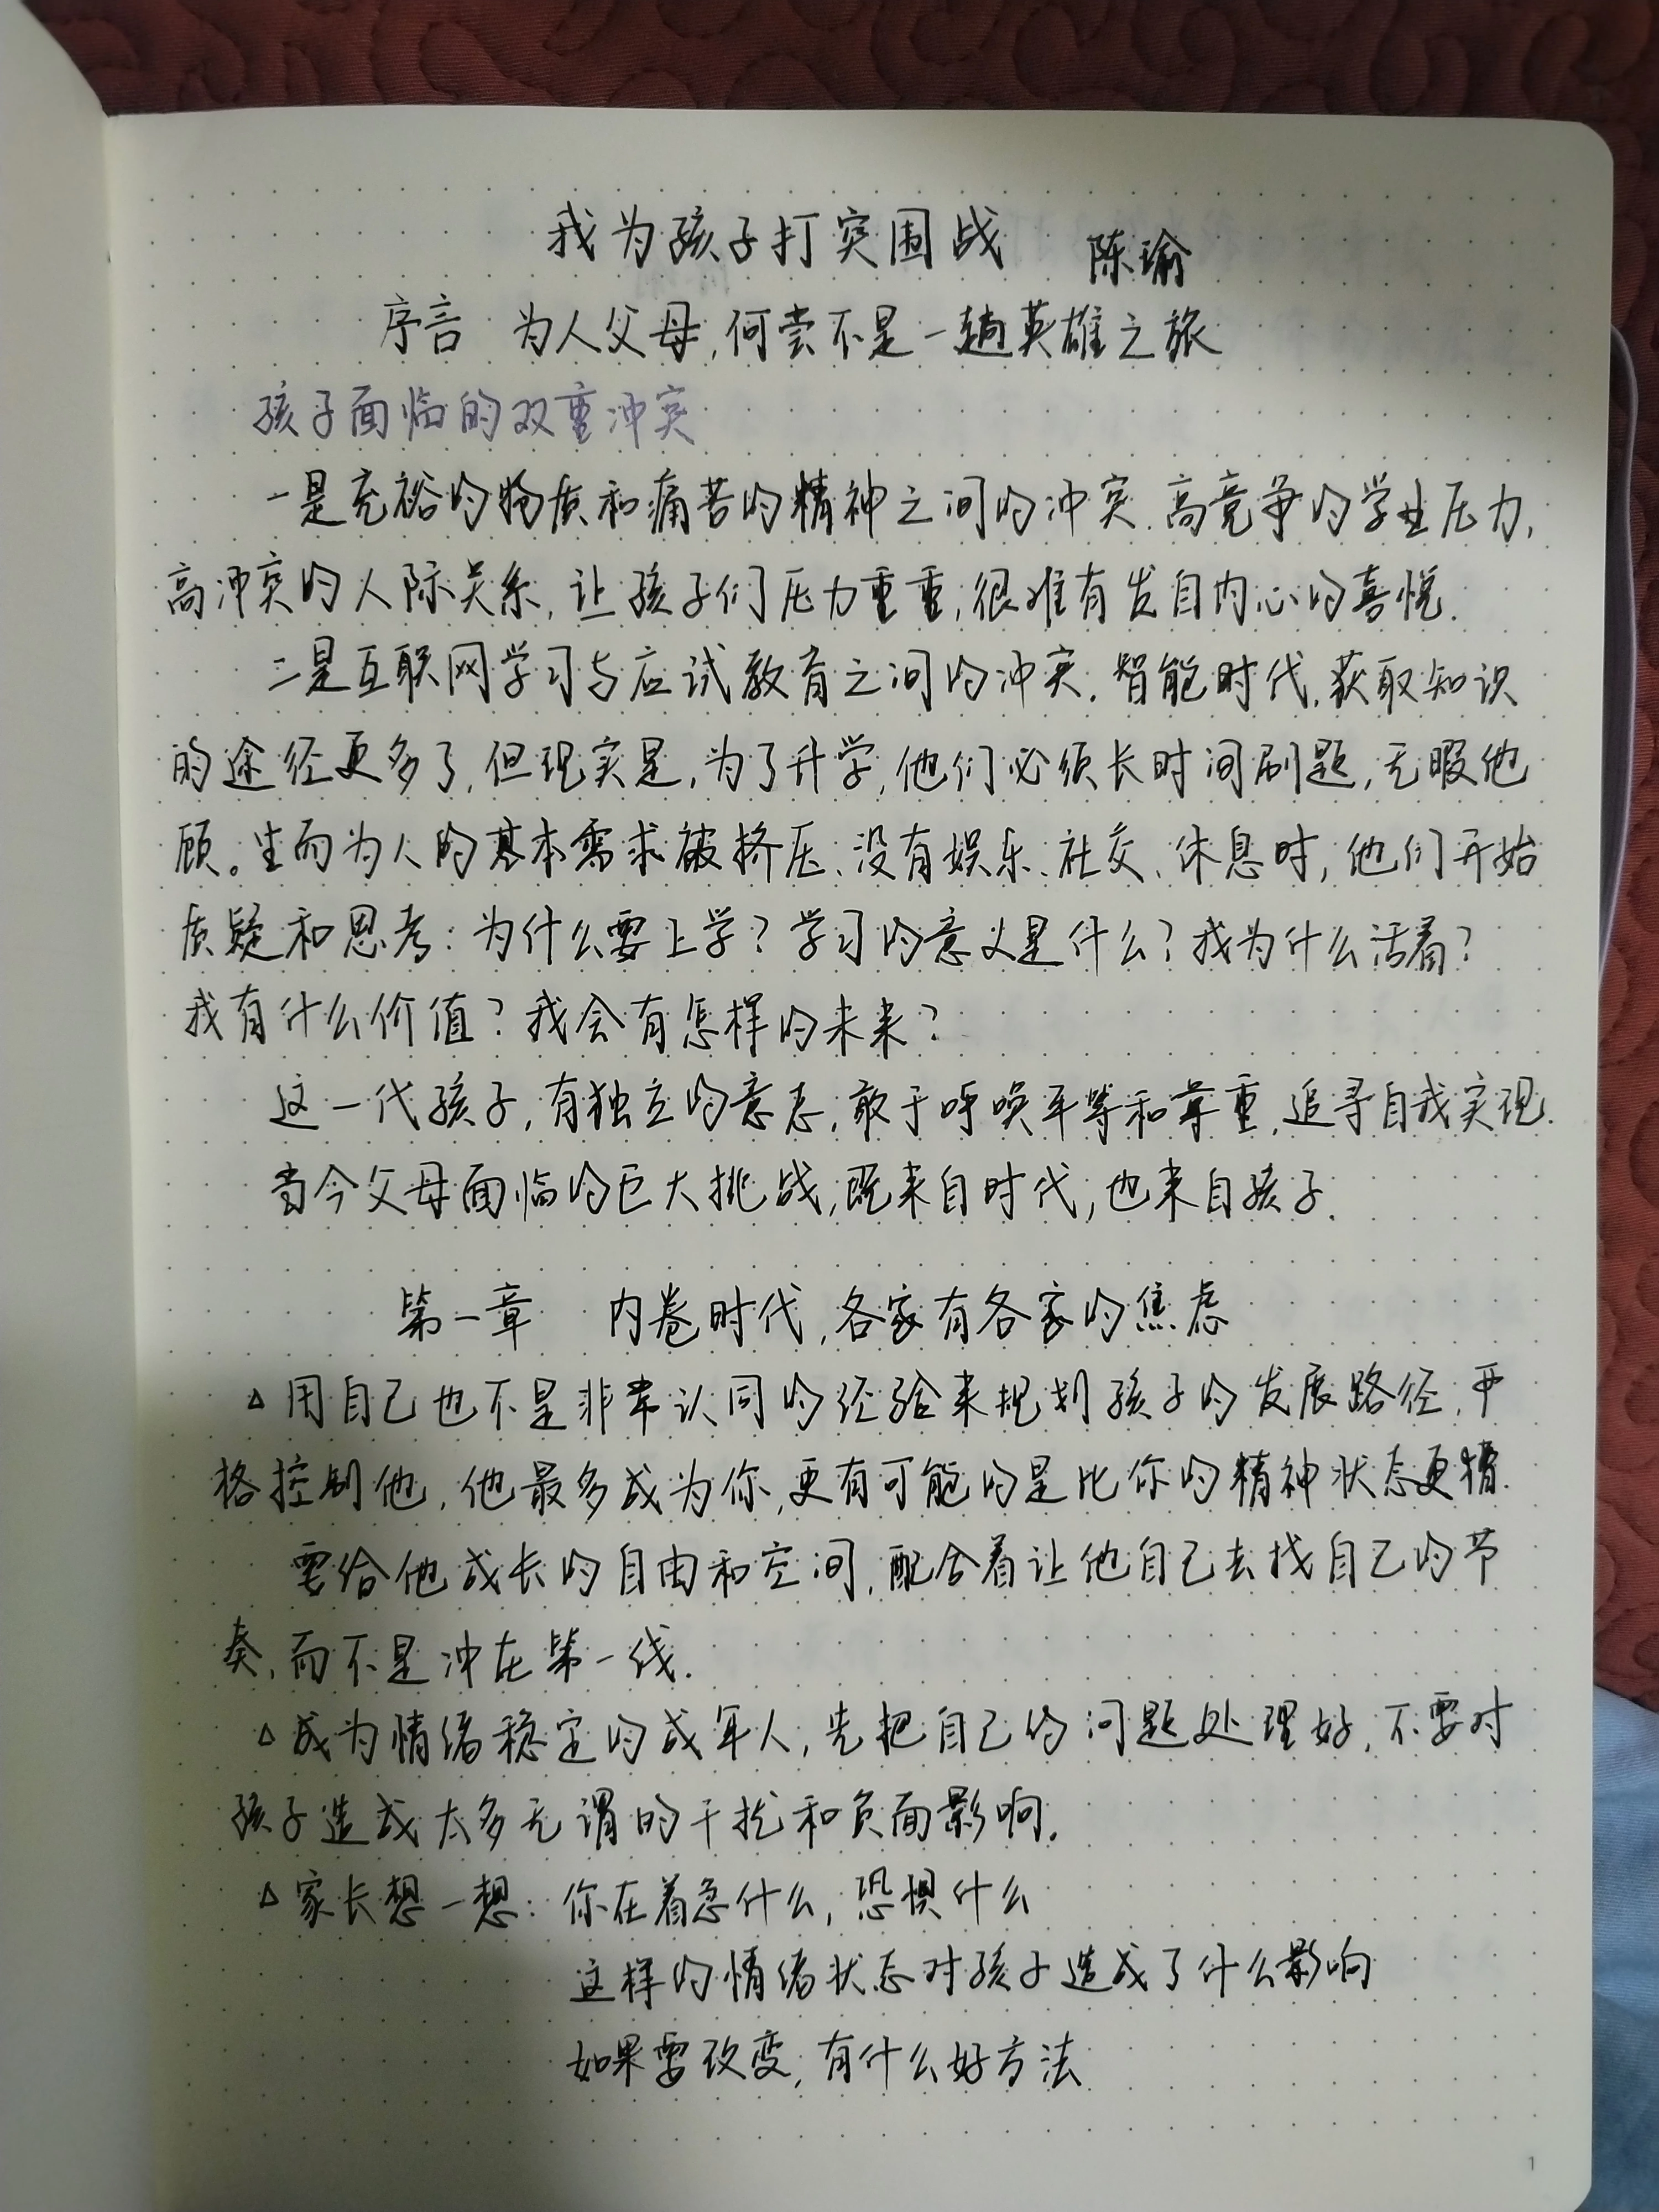 我为孩子打突围战 陈瑜
序言 为人父母,何尝不是一趟英雄之旅
孩子面临的双重冲突
一是充裕的物质和痛苦的精神之间的冲突.高竞争的学业压力,
高冲突的人际关系,让孩子们压力重重,很难有发自内心的喜悦.
二是互联网学习与应试教育之间的冲突.智能时代,获取知识
的途径更多了,但现实是,为了升学,他们必须长时间刷题,无暇他
顾。生而为人的基本需求被挤压、没有娱乐、社交、休息时,他们开始
质疑和思考:为什么要上学?学习的意义是什么?我为什么活着?
我有什么价值?我会有怎样的未来?
这一代孩子,有独立的意志,敢于呼唤平等和尊重,追寻自我实现.
当今父母面临的巨大挑战,既来自时代,也来自孩子.
第一章 内卷时代,各家有各家的焦虑
△用自己也不是非常认同的经验来规划孩子的发展路径,严
格控制他,他最多成为你,更有可能的是比你的精神状态更糟.
要给他成长的自由和空间,配合着让他自己去找自己的节
奏,而不是冲在第一线.
△成为情绪稳定的成年人,先把自己的问题处理好,不要对
孩子造成太多无谓的干扰和负面影响.
△家长想一想:你在着急什么,恐惧什么
这样的情绪状态对孩子造成了什么影响
如果要改变,有什么好方法
1